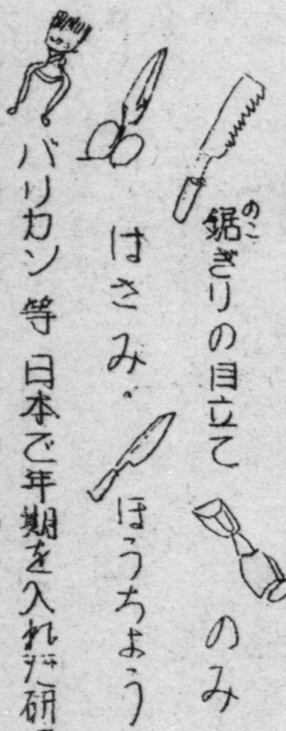 鋸ぎりの目立て のみ
はさみ. ほうちょう
バリカン 等 日本で年期を入れた研